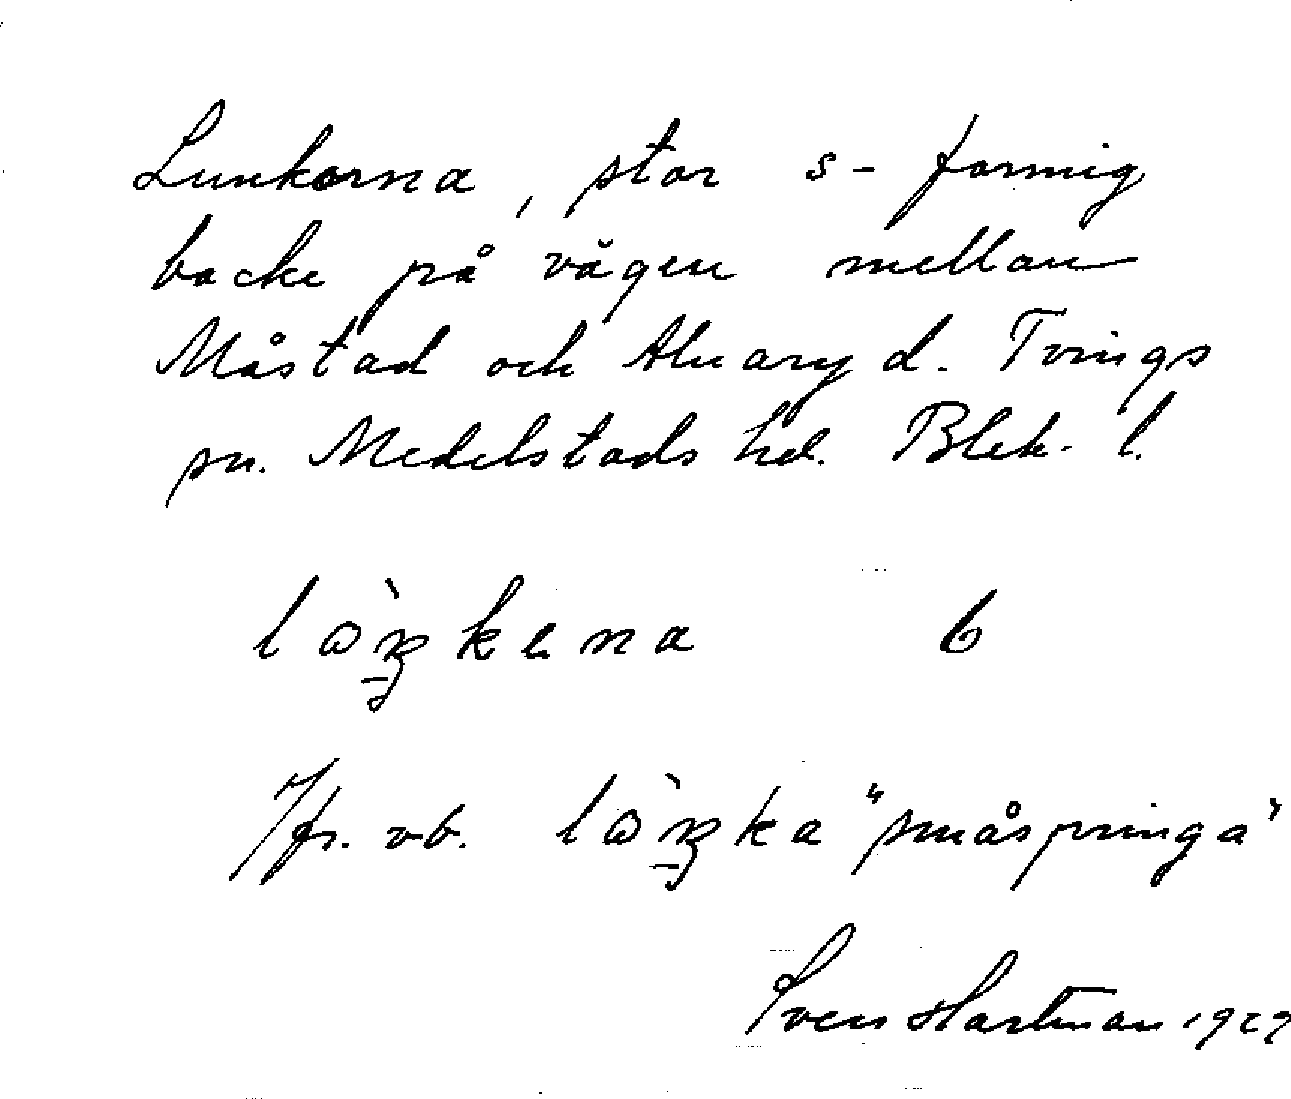 Lunkorna, stor s-formig
backe på vägen mellan
Måstad och Alnaryd. Tvings
sn. Medelstads hd. Blek. l.
lɷ̀ŋkena 6
Jfr. vb. lɷ̀ŋka "småspringa"
Sven Hartman 1929